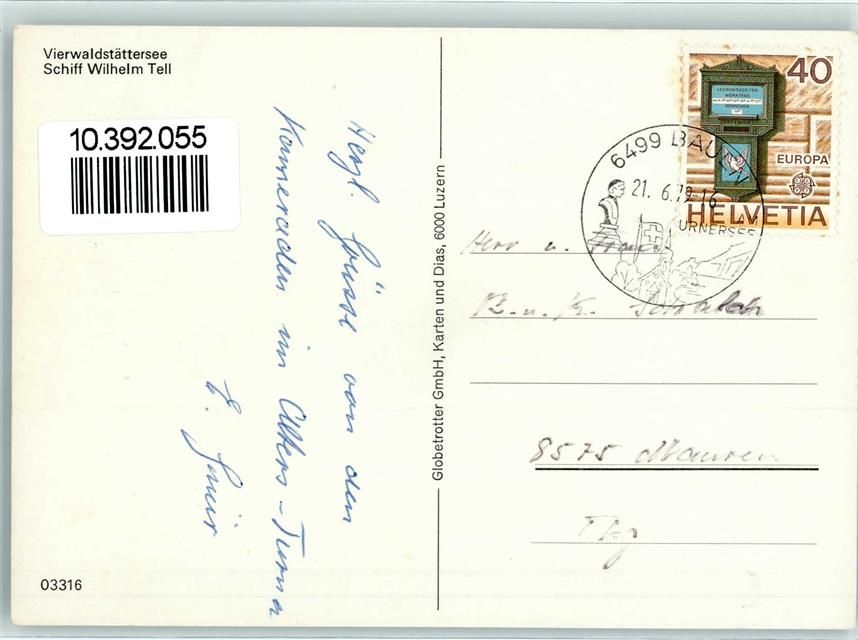 Vierwaldstättersee
Schiff Wilhelm Tell
10.392.055
Herzl. Grüsse von den
Kameraden im Alters-Turna
E.
03316
Globetrotter GmbH, Karten und Dias, 6000 Luzern
40
LEERUNGSZEITEN
WERKTAGS
SONNTAGS
EUROPA
HELVETIA
6499 BAUEN
21. 6.79-16
URNERSEE
Herr u. Frau
R. u. K.
8575 Mauren
Thg